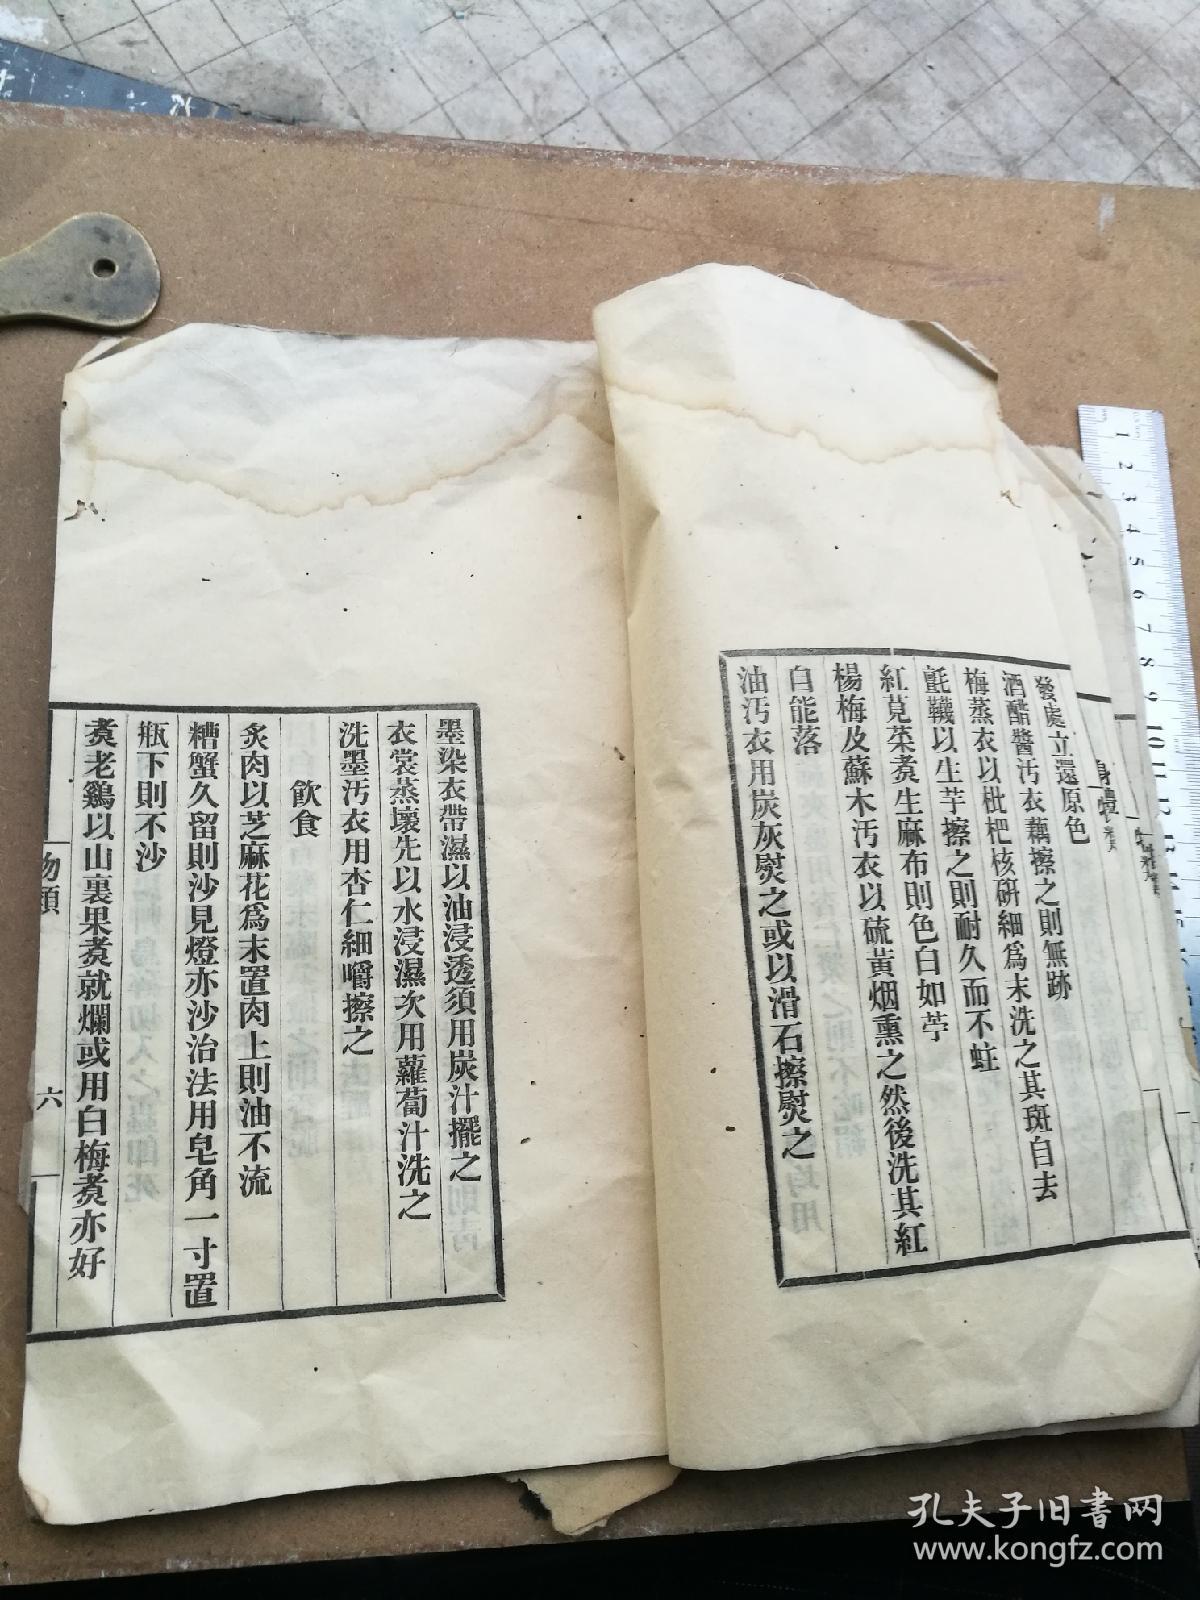 發處立還原色
酒醋醬汚衣藕擦之則無跡
梅蒸衣以枇杷核硏細爲末洗之其斑自去
氈韈以生芋擦之則耐久而不蛀
紅莧菜煑生麻布則色白如苧
楊梅及蘇木汚衣以硫黃烟熏之然後洗其紅
自能落
油汚衣用炭灰熨之或以滑石擦熨之
墨染衣帶濕以油浸透須用炭汁擺之
衣裳蒸壞先以水浸濕次用蘿蔔汁洗之
洗墨汚衣用杏仁細嚼擦之
飲食
炙肉以芝麻花爲末置肉上則油不流
糟蟹久留則沙見燈亦沙治法用皂角一寸置
瓶下則不沙
煑老鷄以山裏果煑就爛或用白梅煑亦好
物類
六
1 2 3 4 5 6 7 8 9 10 11
孔夫子旧書网
www.kongfz.com